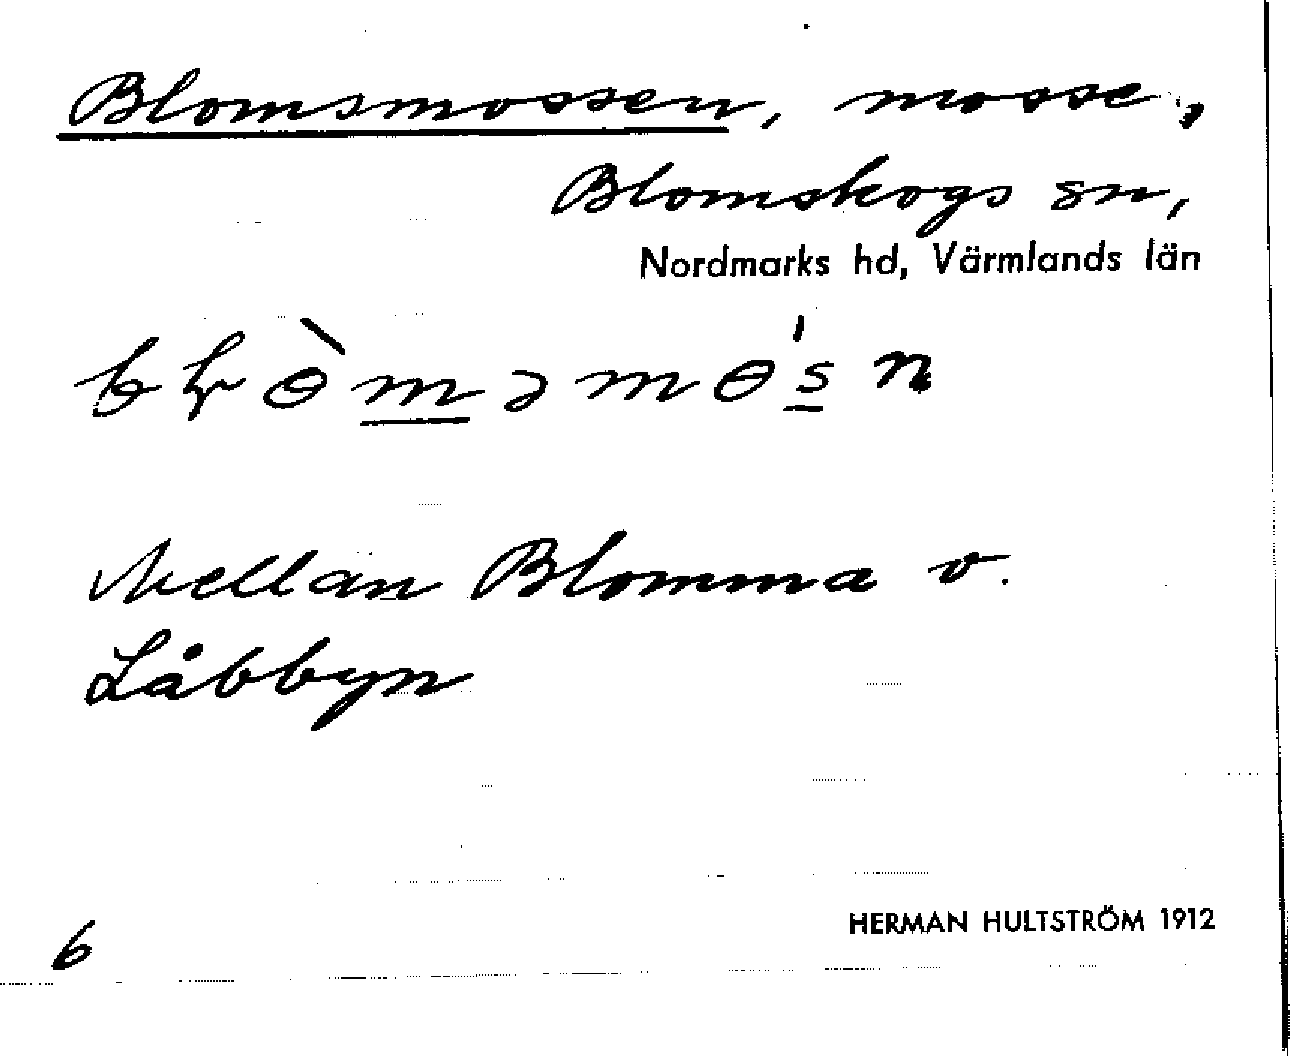 Blomsmossen, mosse,
Blomskogs sn,
Nordmarks hd, Värmlands län
Mellan Blomma o.
Låbbyn
HERMAN HULTSTRÖM 1912
6